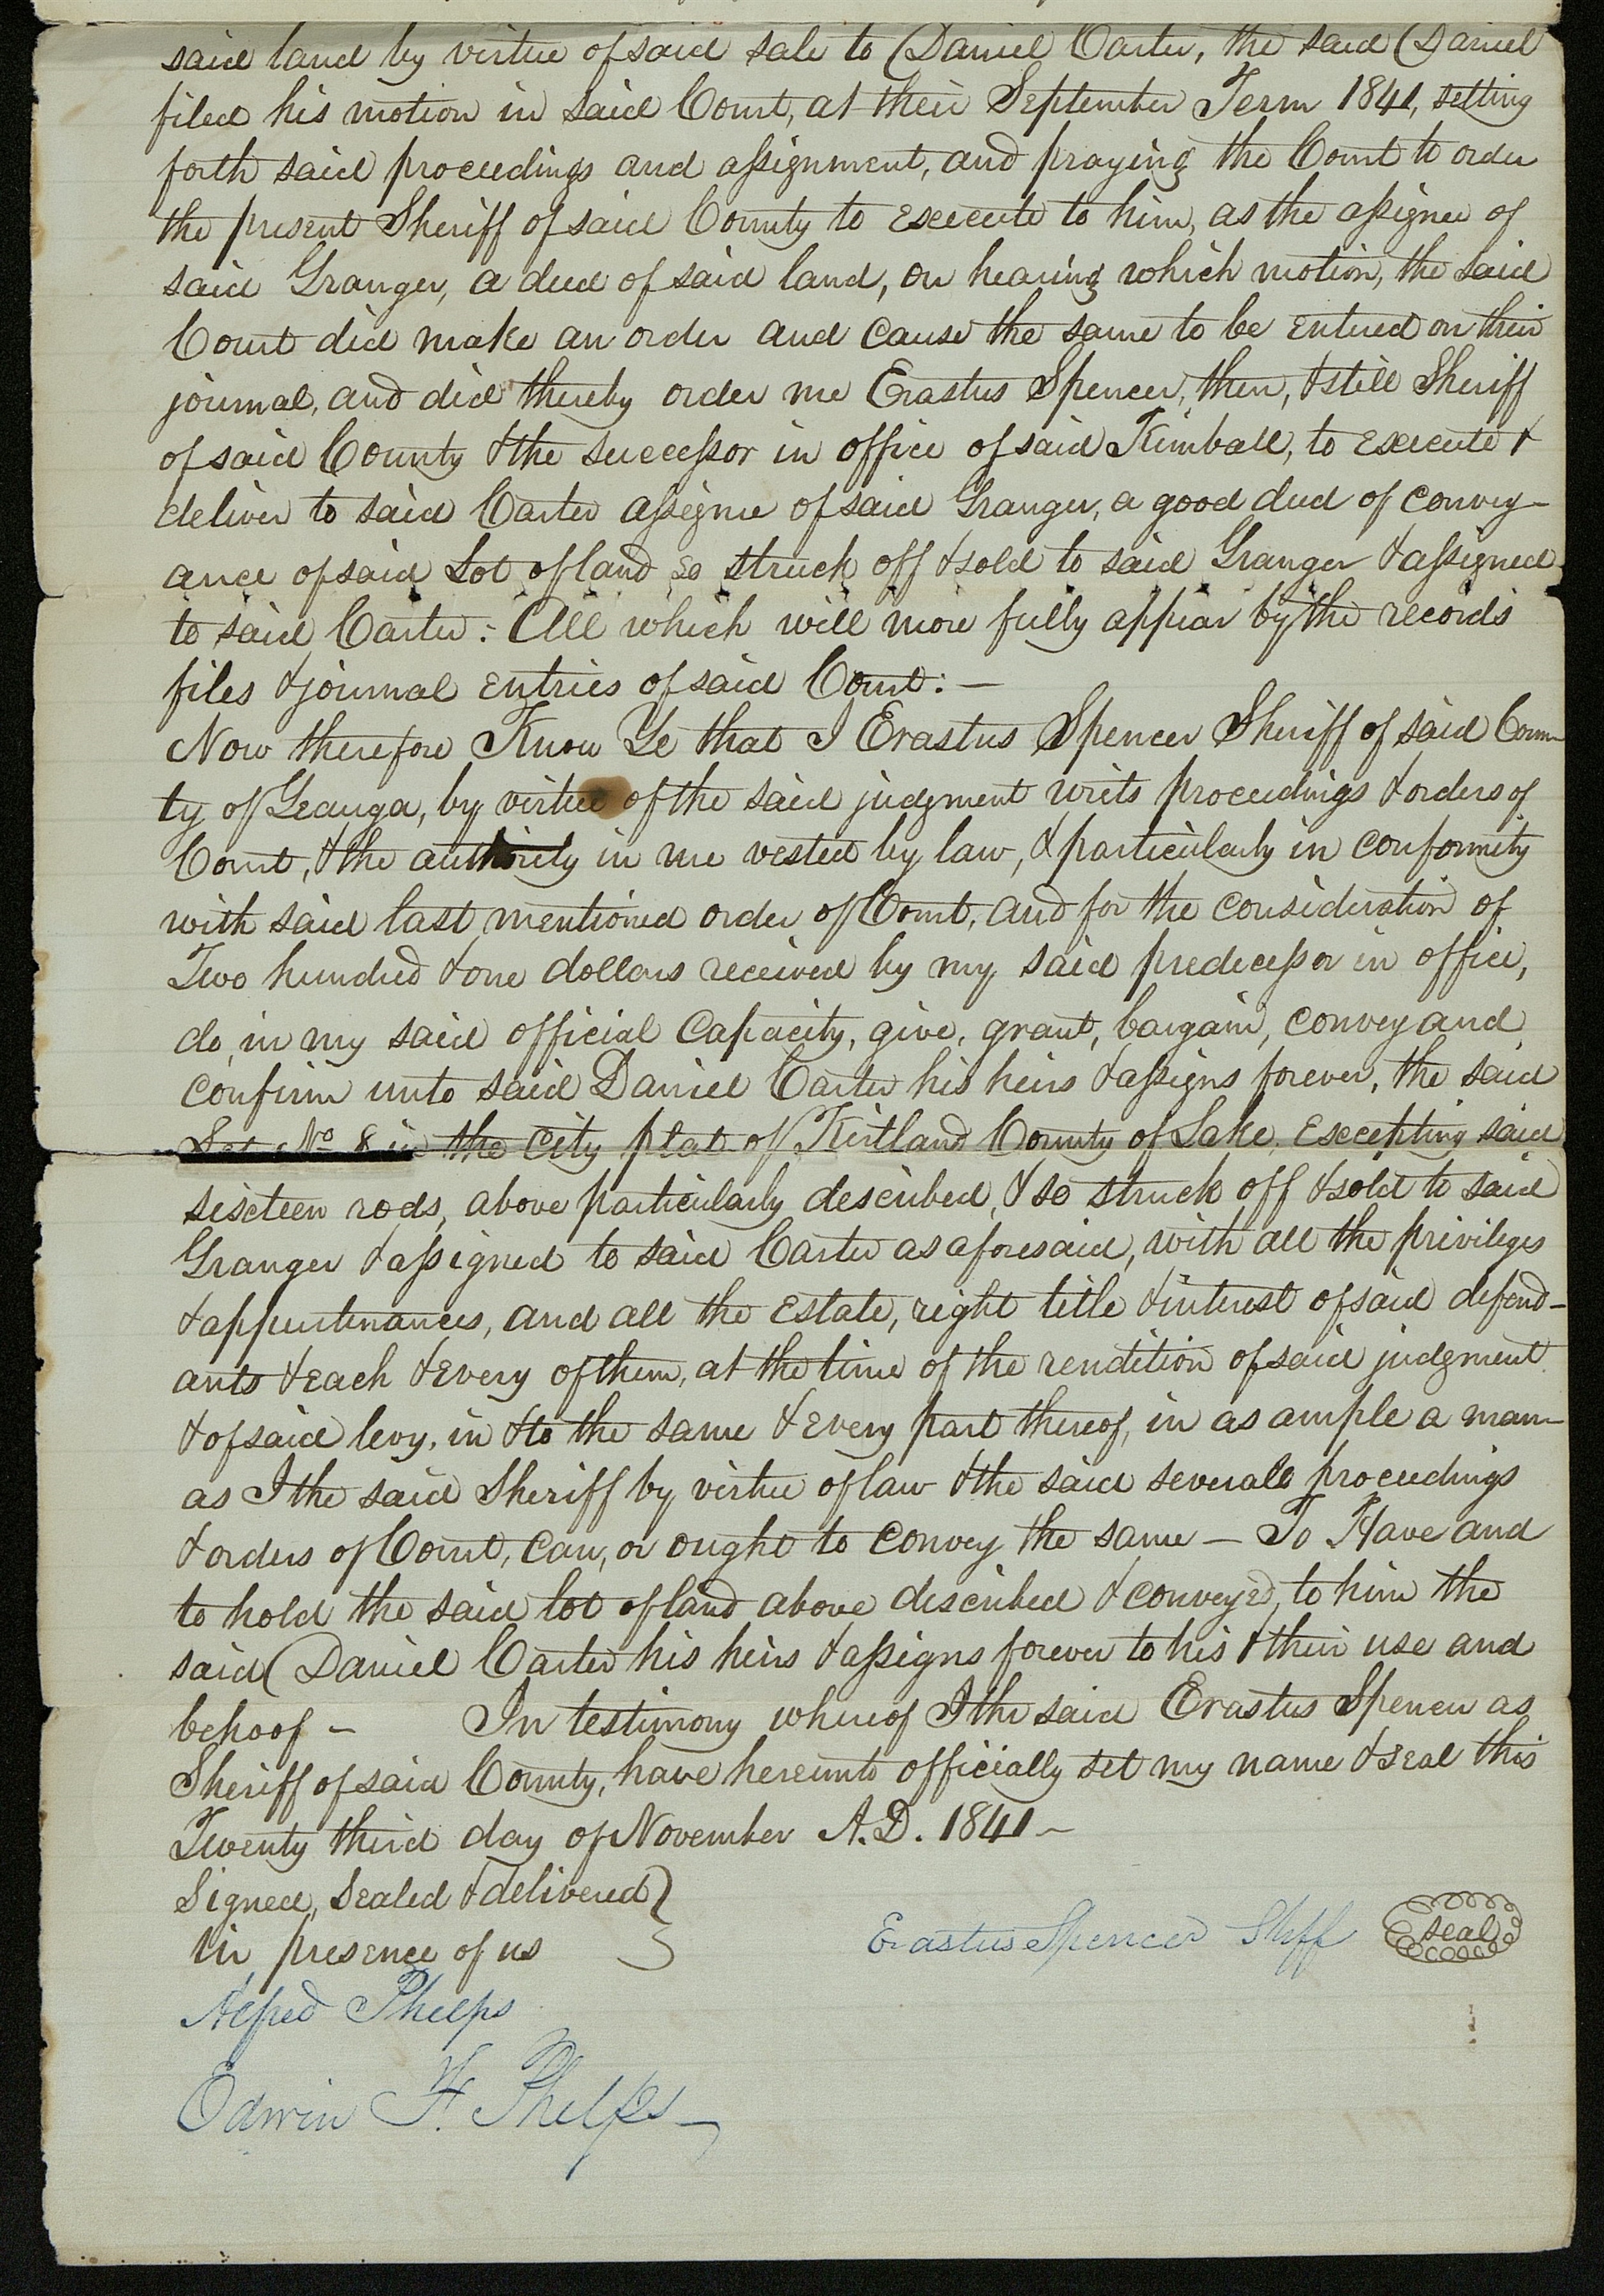 said land by virtue of said sale to Daniel Carter, the said Daniel
filed his motion in said Court, at their September Term 1841, setting
forth said proceedings and assignment, and praying the Court to order
the present Sheriff of said County to execute to him, as the assignee of
said Granger, a deed of said land, on hearing which motion, the said
Court did make an order and cause the same to be entered on their
journal, and did thereby order me Erastus Spencer, then, & still Sheriff
of said County & the successor in office of said Kimball, to execute &
deliver to said Carter assignee of said Granger, a good deed of convey-
ance of said Lot of land so struck off & sold to said Granger & assigned
to said Carter: All which will more fully appear by the records
files & journal entries of said Court: —
Now therefore Know Ye that I Erastus Spencer Sheriff of said Coun-
ty of Geauga, by virtue of the said judgment writs proceedings & orders of
Court, & the authority in me vested by law, & particularly in conformity
with said last mentioned order of Court, and for the consideration of
Two hundred & one dollars received by my said predecessor in office,
do, in my said official Capacity, give, grant, bargain, convey and
confirm unto said Daniel Carter his heirs & assigns forever, the said
Lot No 8 in the City plat of Kirtland County of Lake. Excepting said
sixteen rods, above particularly described, & so struck off & sold to said
Granger & assigned to said Carter as aforesaid, with all the privileges
& appurtenances, and all the Estate, right title & interest of said defend-
ants & each & every of them, at the time of the rendition of said judgment
& of said levy, in & to the same & every part thereof, in as ample a man-
as I the said Sheriff by virtue of law & the said several proceedings
& orders of Court, can, or ought to convey the same — To Have and
to hold the said lot of land above described & conveyed, to him the
said Daniel Carter his heirs & assigns forever to his & their use and
behoof — In testimony whereof I the said Erastus Spencer as
Sheriff of said County, have hereunto officially set my name & seal this
Twenty third day of November A.D. 1841 —
Signed, Sealed & delivered }
in presence of us
Erastus Spencer Shff seal
Alfred Phelps
Edwin F. Phelps